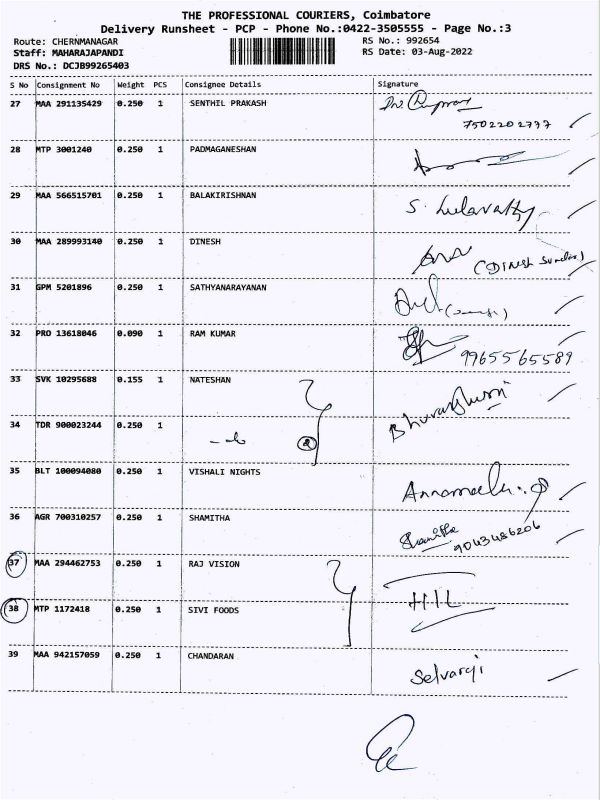 THE PROFESSIONAL COURIERS, Coimbatore
Delivery Runsheet - PCP - Phone No.:0422-3505555 - Page No.:3
Route: CHERNMANAGAR RS No.: 992654
Staff: MAHARAJAPANDI RS Date: 03-Aug-2022
DRS No.: DCJB99265403
S No Consignment No Weight PCS Consignee Details Signature
27 MAA 291135429 0.250 1 SENTHIL PRAKASH
7502202777
28 MTP 3001240 0.250 1 PADMAGANESHAN
29 MAA 566515701 0.250 1 BALAKIRISHNAN S.
30 MAA 289993140 0.250 1 DINESH
(DINESH
31 GPM 5201896 0.250 1 SATHYANARAYANAN
32 PRO 13618046 0.090 1 RAM KUMAR
9965565589
33 SVK 10295688 0.155 1 NATESHAN
34 TDR 900023244 0.250 1
2
35 BLT 100094080 0.250 1 VISHALI NIGHTS
36 AGR 700310257 0.250 1 SHAMITHA Shamitha
9043486206
37 MAA 294462753 0.250 1 RAJ VISION
38 MTP 1172418 0.250 1 SIVI FOODS HIL
39 MAA 942157059 0.250 1 CHANDARAN Selvaraji